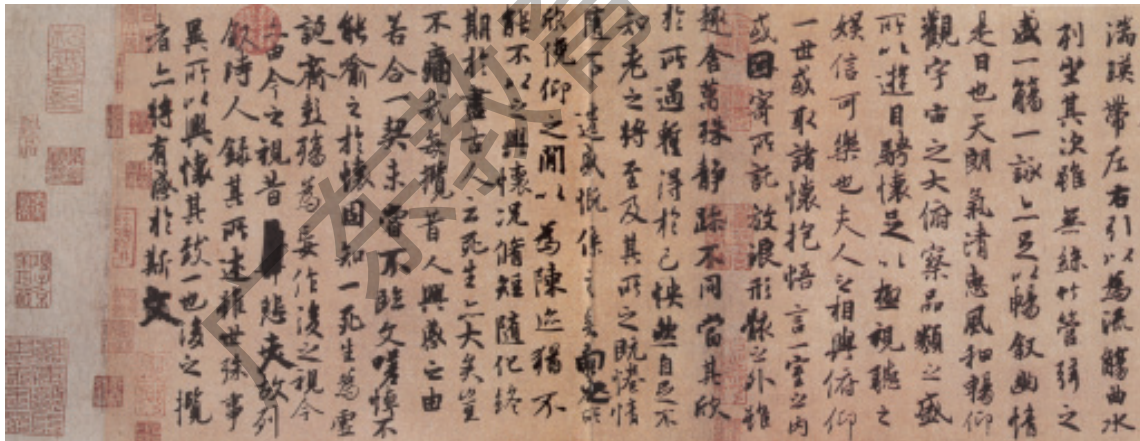 湍暎帶左右引以為流觴曲水
列坐其次雖無絲竹管弦之
盛一觴一詠亦足以暢敘幽情
是日也天朗氣清惠風和暢仰
觀宇宙之大俯察品類之盛
所以遊目騁懷足以極視聽之
娛信可樂也夫人之相與俯仰
一世或取諸懷抱悟言一室之內
或因寄所託放浪形骸之外雖
趣舍萬殊靜躁不同當其欣
於所遇蹔得於己怏然自足不
知老之將至及其所之既惓情
隨事遷感慨係之矣向之所
欣俛仰之閒以為陳迹猶不
能不以之興懷況脩短隨化終
期於盡古人云死生亦大矣豈
不痛哉每攬昔人興感之由
若合一契未嘗不臨文嗟悼不
能喻之於懷固知一死生為虛
誕齊彭殤為妄作後之視今
亦由今之視昔悲夫故列
敘時人錄其所述雖世殊事
異所以興懷其致一也後之攬
者亦將有感於斯文
广东教育